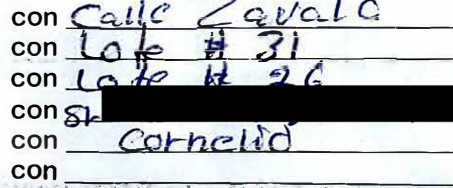 con Calle Zavala
con Lote # 31
con Lote # 26
con Sr
con Cornelio
con